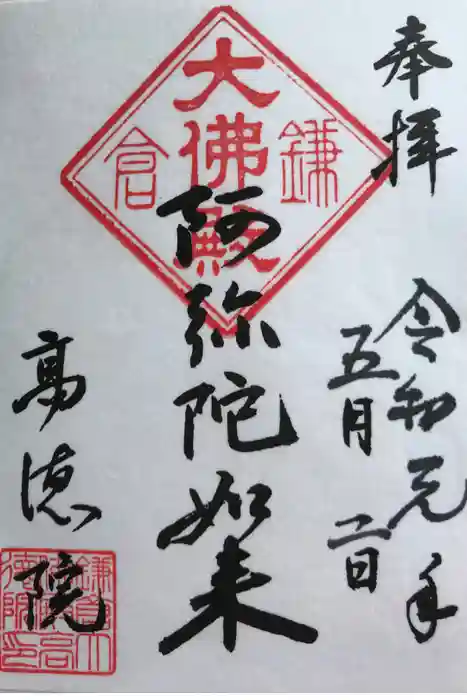 奉拝
令和元年
五月二日
鎌倉
大佛殿
阿弥陀如来
高徳院